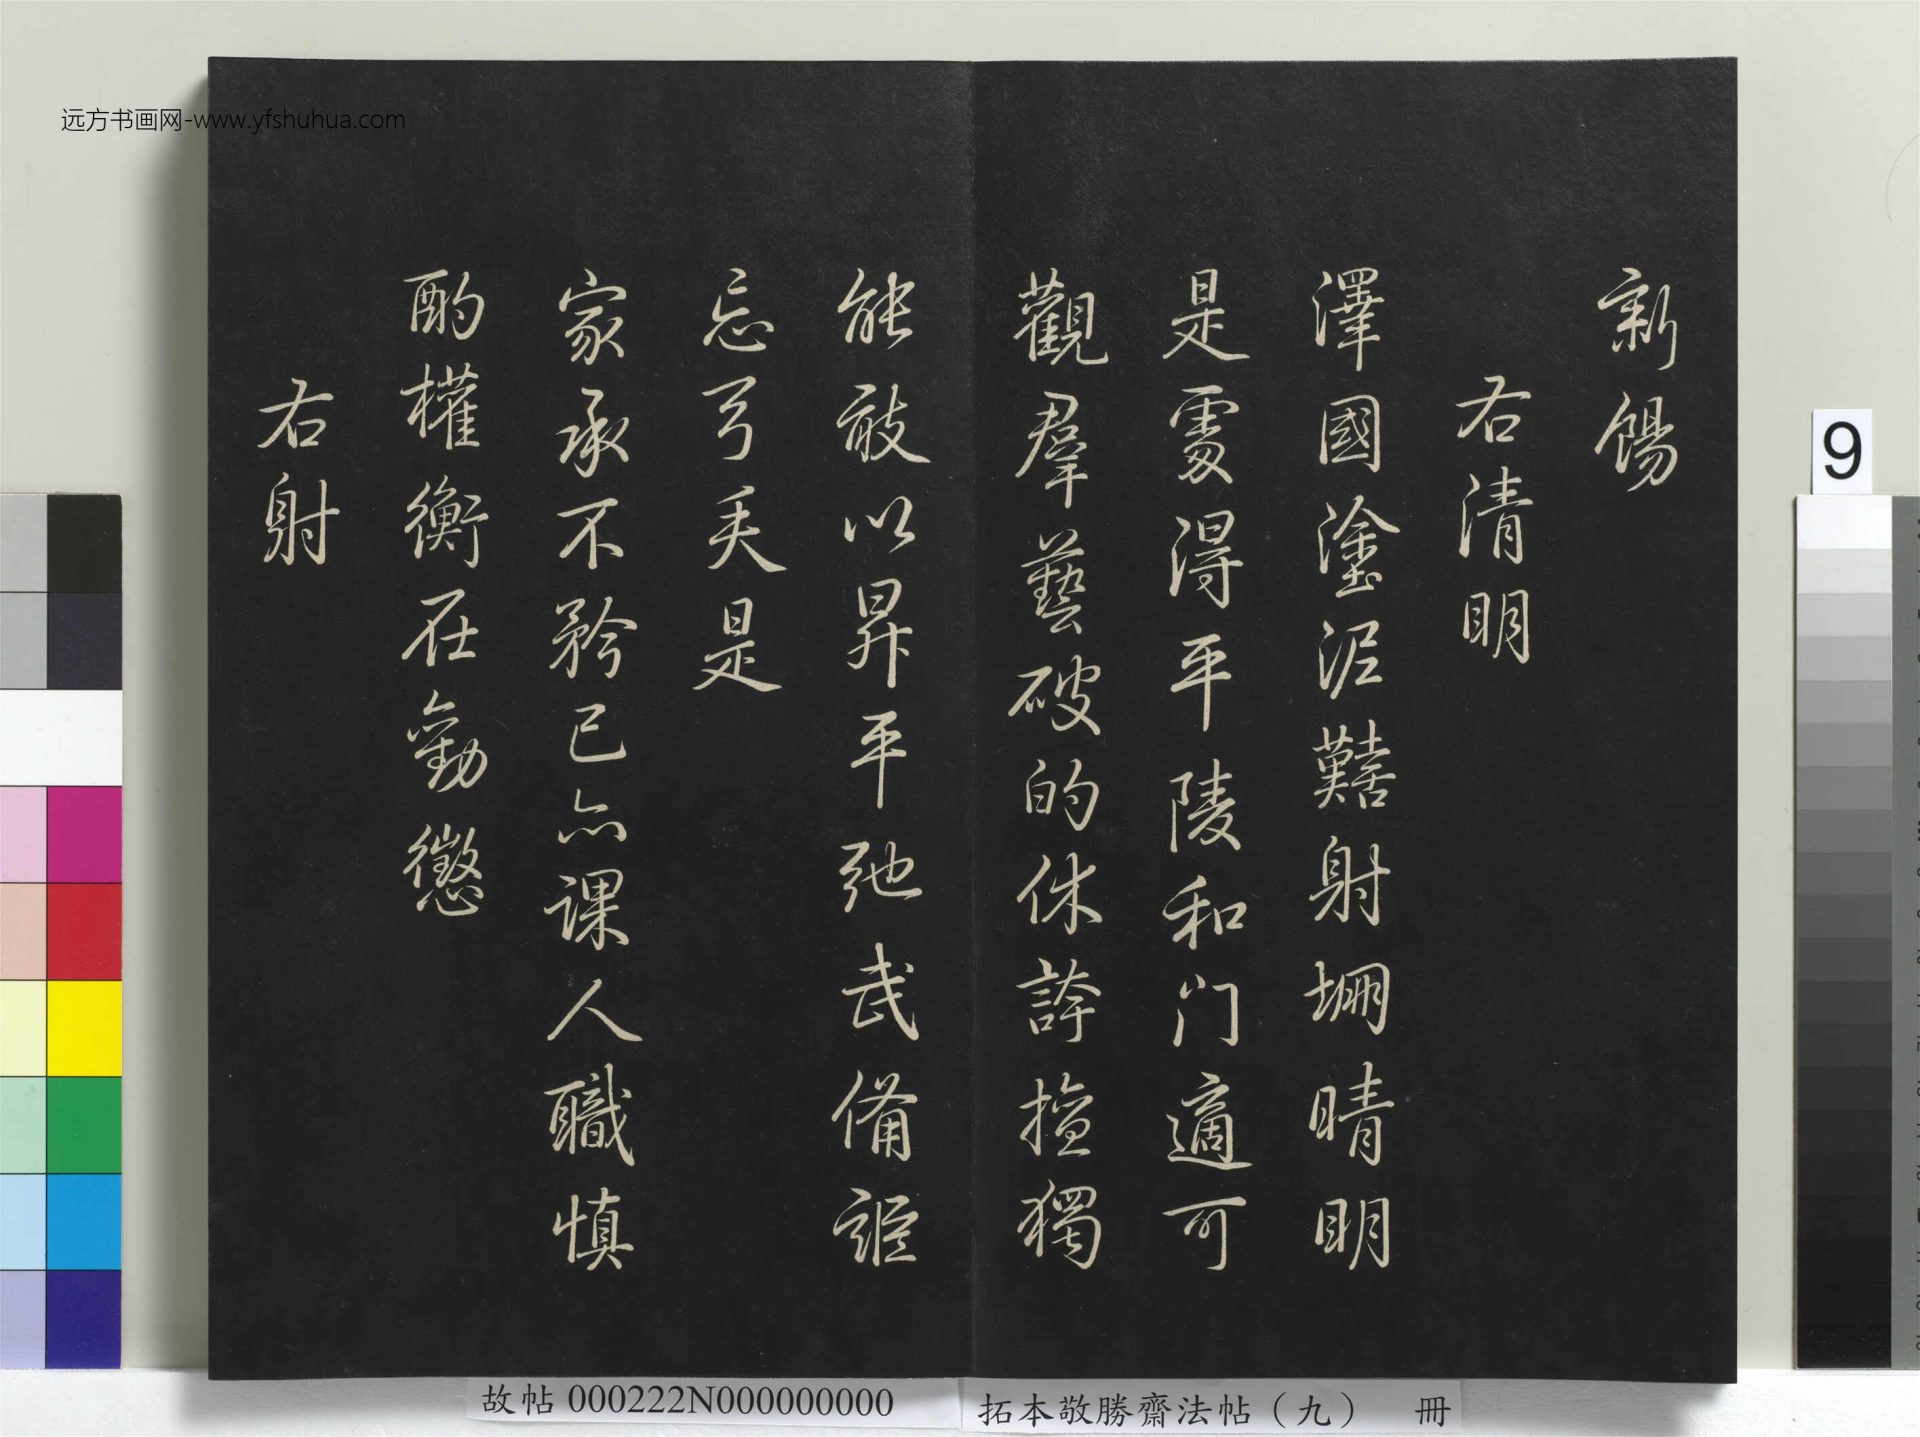 远方书画网-www.yfshuhua.com
新餳
右清明
澤國塗泥囏射堋晴明
是處得平陵和門適可
觀羣藝破的休誇擅獨
能敢以昇平弛武備詎
忘弓矢是
家承不矜己亦課人職慎
酌權衡在勸懲
右射
9
故帖 000222N000000000
拓本敬勝齋法帖（九） 冊